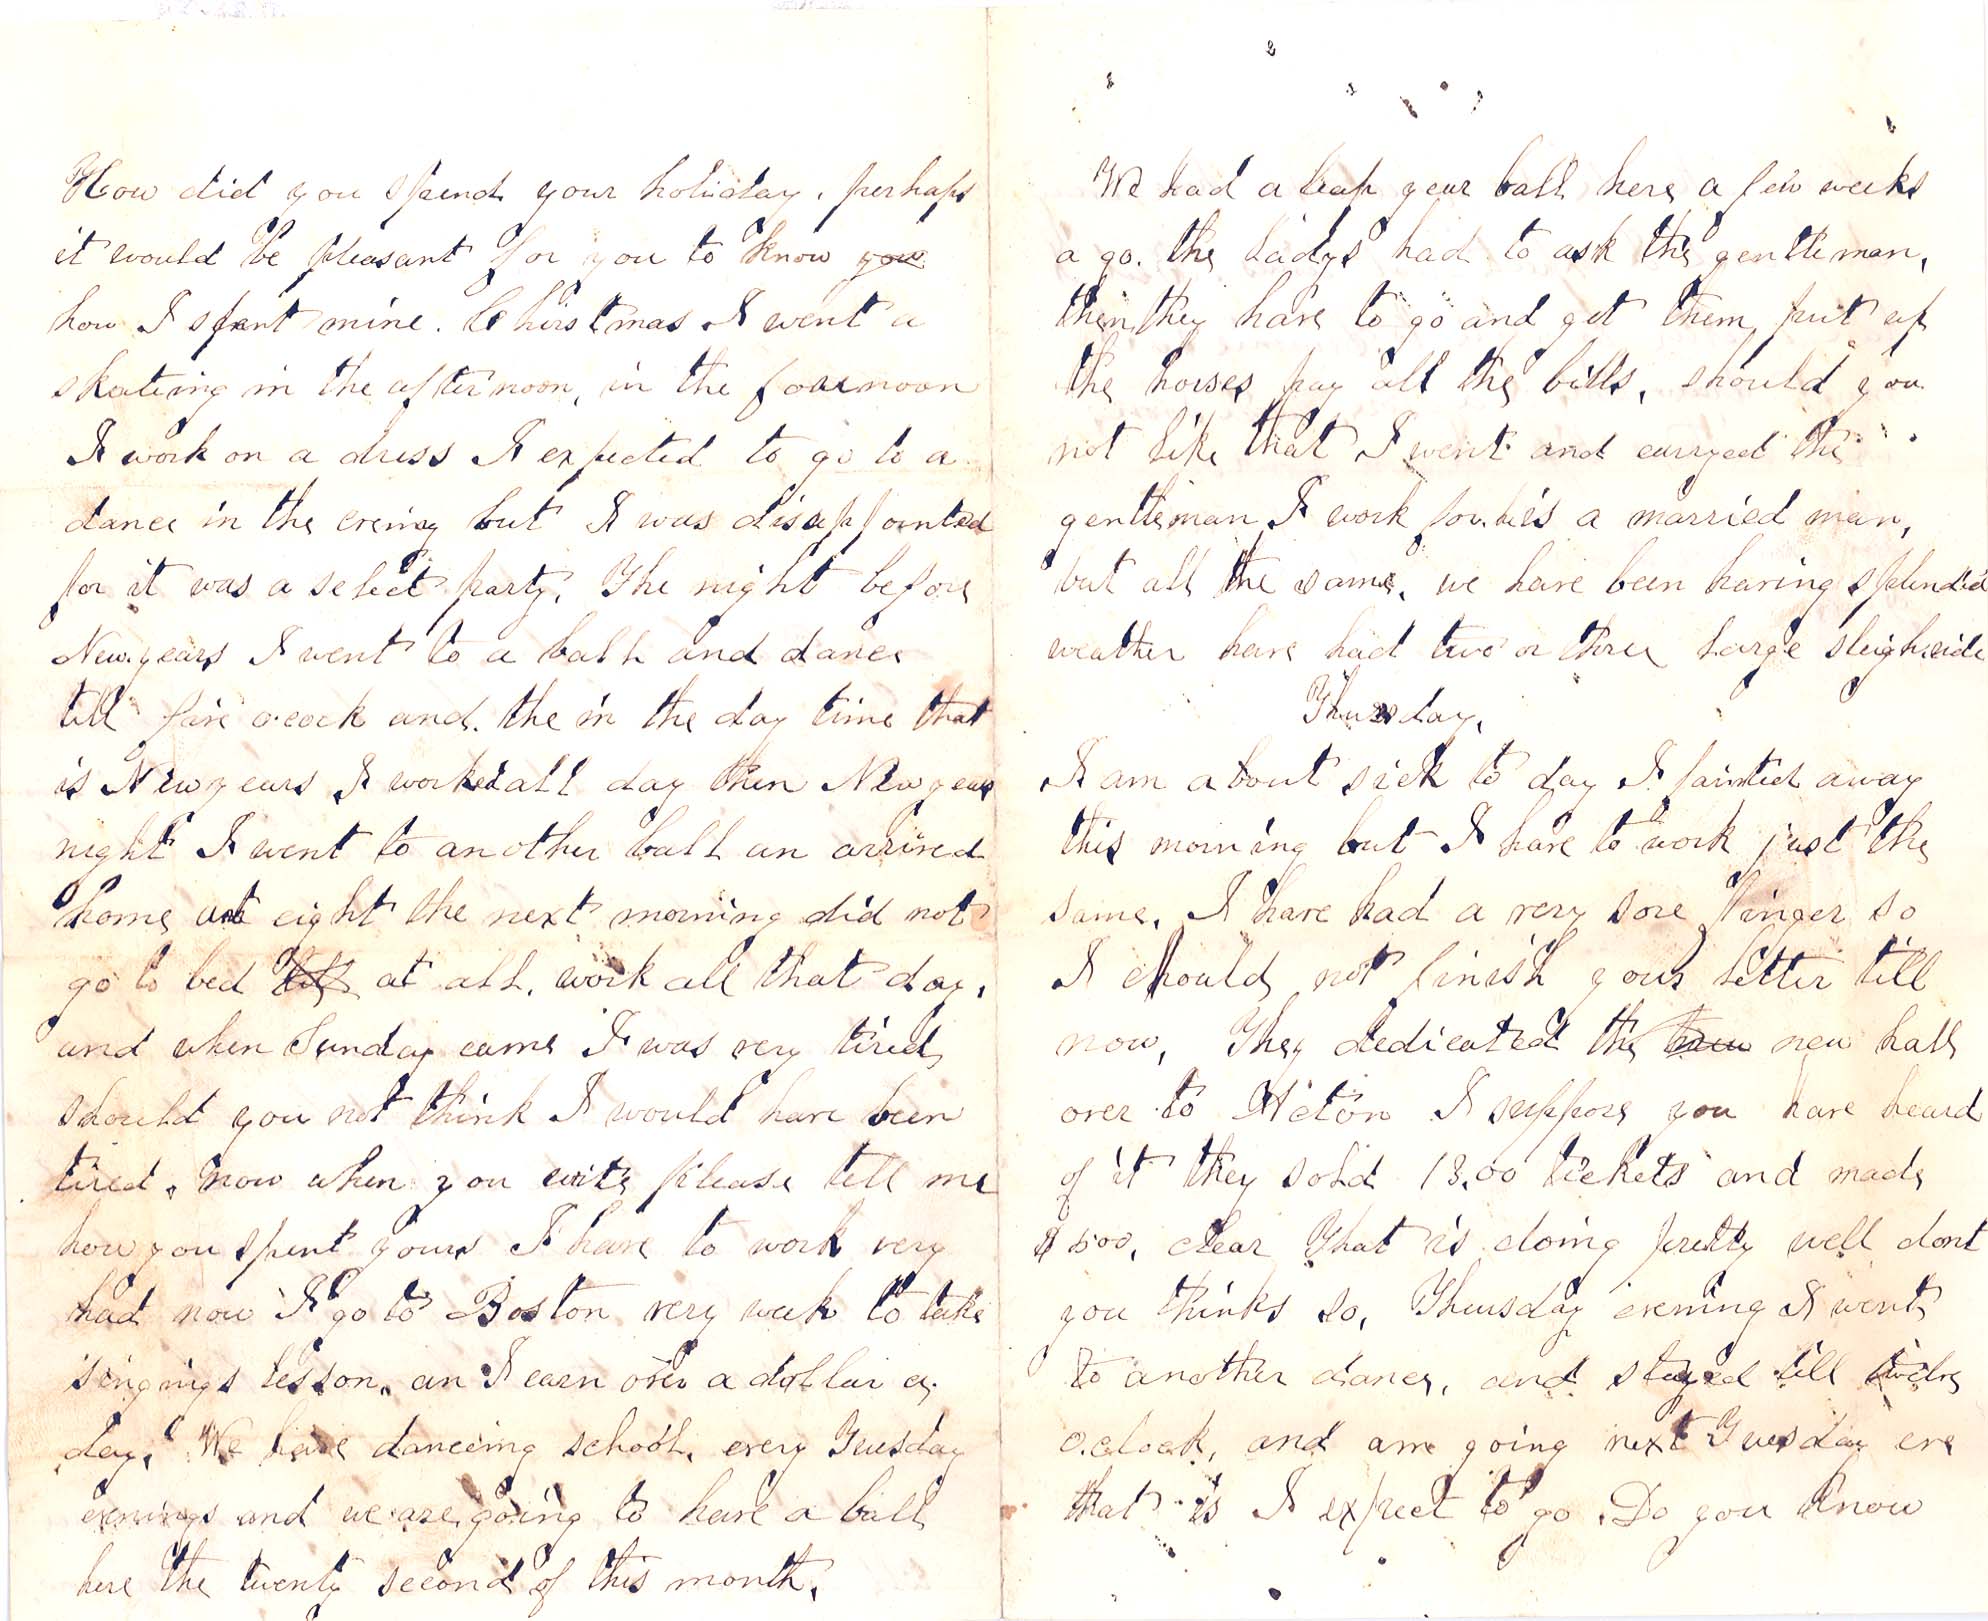 How did you spend your holiday, perhaps
it would be pleasant for you to know you
how I spent mine. Chirstmas I went a
skateing in the afternoon, in the foarnoon
I work on a dress I expected to go to a
dance in the evening but I was disappointed
for it was a select party, The night before
New.years I went to a ball and dance
till five o.cock and. the in the day time that
is New years I worked all day then New years
night I went to another ball an arrived
home at eight the next morning did not
go to bed till at all, work all that day,
and when Sunday came I was very tired,
should you not think I would have been
tired. now when you write please tell me
how you spent yours I have to work very
had now I go to Boston very week to take
singings lesson, an I earn over a dollar a
day, We have danceing school, every Tuesday
evenings and we are going to have a ball
here the twenty second of this month,
We had a leap year ball here a few weeks
a go. the Ladys had to ask the gentleman,
then they have to go and get them, put up
the horses pay all the bills, should you
not like that I went and carryed the
gentleman I work for. he's a married man,
but all the same, we have been having splendid
weather have had two or three Large sleighride
Thursday,
I am about sick to day I fainted away
this morning but I have to work just the
same, I have had a very sore finger so
I should not finish your letter till
now, They dedicated the new new hall
over to Acton I suppose you have heard
of it they sold 13.00 tickets and made
$500, clear That is doing pretty well dont
you thinks so, Thursday evening I went
to another dance, and stayed till twelve
o.clock, and am going next Tuesday eve
that is I expect to go. Do you know